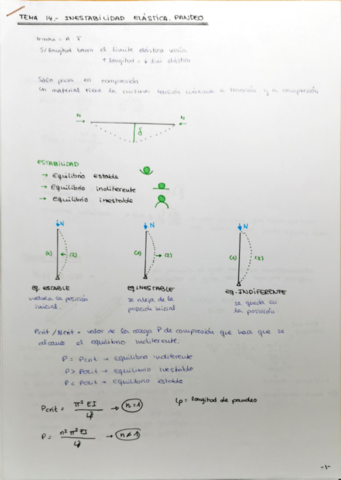 TEMA 14.- INESTABILIDAD ELÁSTICA. PANDEO
Si longitud
↑ longitud = ↓ lím. elástico
Sólo pasa en compresión
Un material tiene la misma tensión máxima a tracción y a compresión
N
N
δ
ESTABILIDAD
→ Equilibrio estable
→ Equilibrio indiferente
→ Equilibrio inestable
N
N
N
(1)
(2)
(1)
(2)
(1)
(2)
eq. ESTABLE
eq. INESTABLE
eq. INDIFERENTE
vuelve a la posición
inicial
se aleja de la
posición inicial
se queda en
la posición
Pcrit / Ncrit = valor de la carga P de compresión que hace que se
alcance el equilibrio indiferente.
P = Pcrit → equilibrio indiferente
P > Pcrit → equilibrio inestable
P < Pcrit → equilibrio estable
Pcrit = π² EI / lp² → n=1
lp = longitud de pandeo
P = n² π² EI / lp² → n≠1
-1-